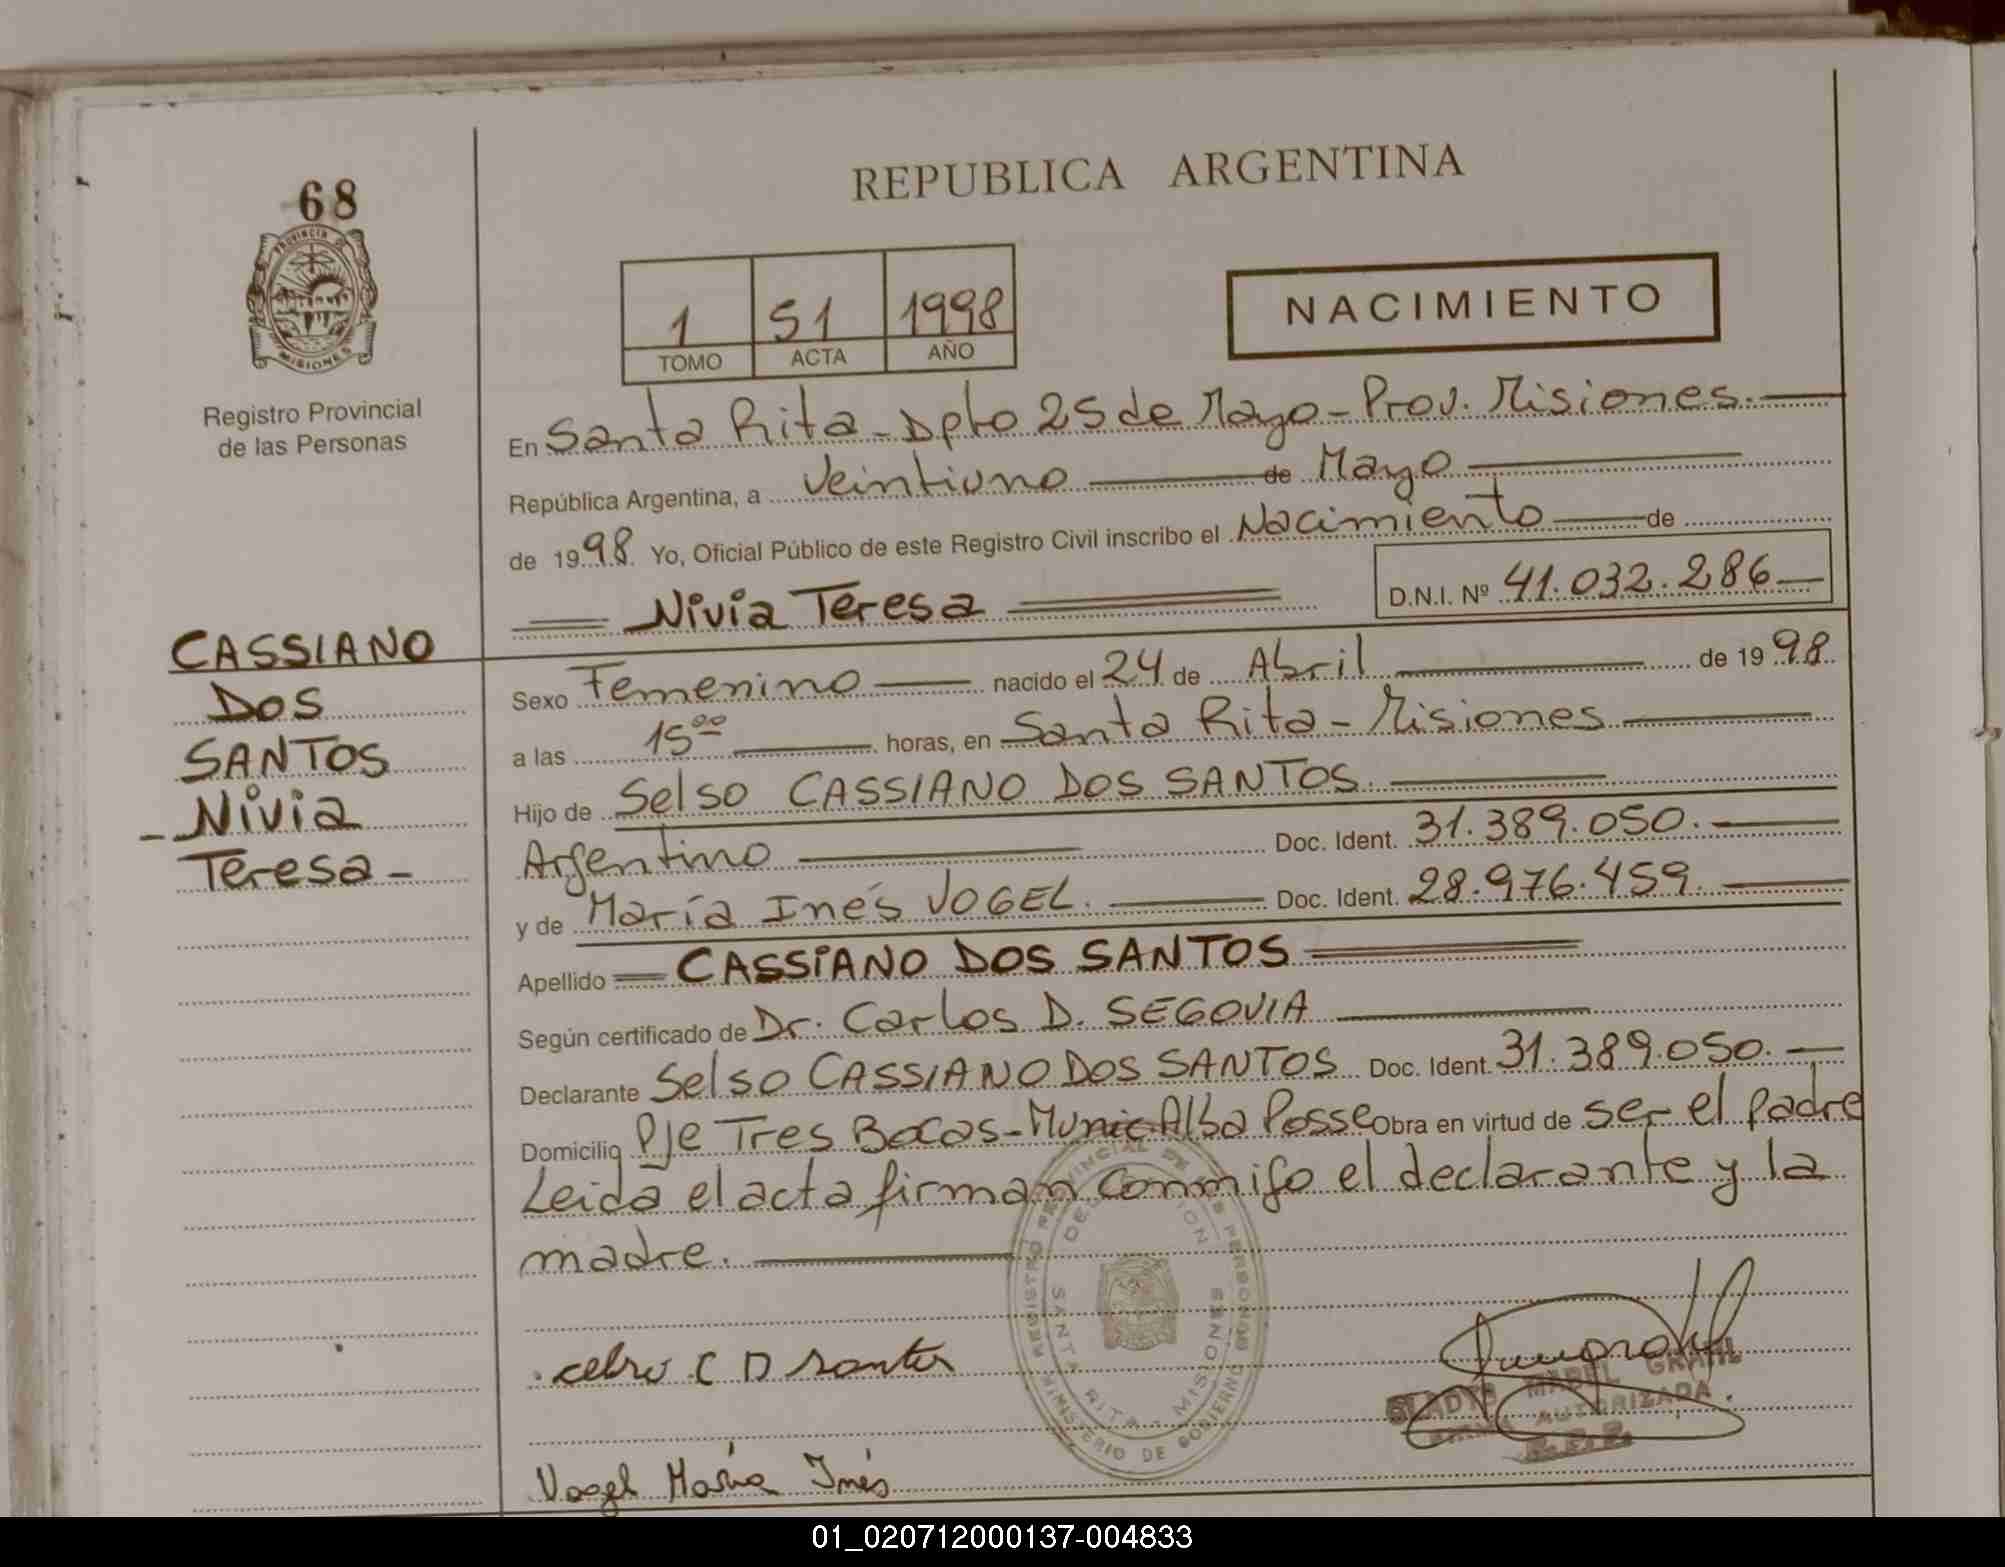 68
PROVINCIA DE
MISIONES
Registro Provincial
de las Personas
CASSIANO
DOS
SANTOS
- Nivia
Teresa -
REPUBLICA ARGENTINA
1 51 1998
TOMO ACTA AÑO
NACIMIENTO
En Santa Rita - Dpto 25 de Mayo - Prov. Misiones.
República Argentina, a Veintiuno de Mayo
de 1998. Yo, Oficial Público de este Registro Civil inscribo el Nacimiento de
Nivia Teresa D.N.I. Nº 41.032.286
Sexo Femenino nacido el 24 de Abril de 1998
a las 15⁰⁰ horas, en Santa Rita - Misiones
Hijo de Selso CASSIANO DOS SANTOS.
Argentino Doc. Ident. 31.389.050.
y de María Inés VOGEL. Doc. Ident. 28.976.459.
Apellido CASSIANO DOS SANTOS
Según certificado de Dr. Carlos D. SEGOVIA
Declarante Selso CASSIANO DOS SANTOS Doc. Ident. 31.389.050.
Domicilio Pje Tres Bocas - Munic Alba Posse Obra en virtud de ser el padre
Leida el acta firman conmigo el declarante y la
madre.
REGISTRO PROVINCIAL DE LAS PERSONAS
DELEGACION
SANTA RITA - MISIONES
MINISTERIO DE GOBIERNO
C D santos
GLADYS MABEL GRAHL
FIRMA AUTORIZADA
Vogel María Inés
01_020712000137-004833